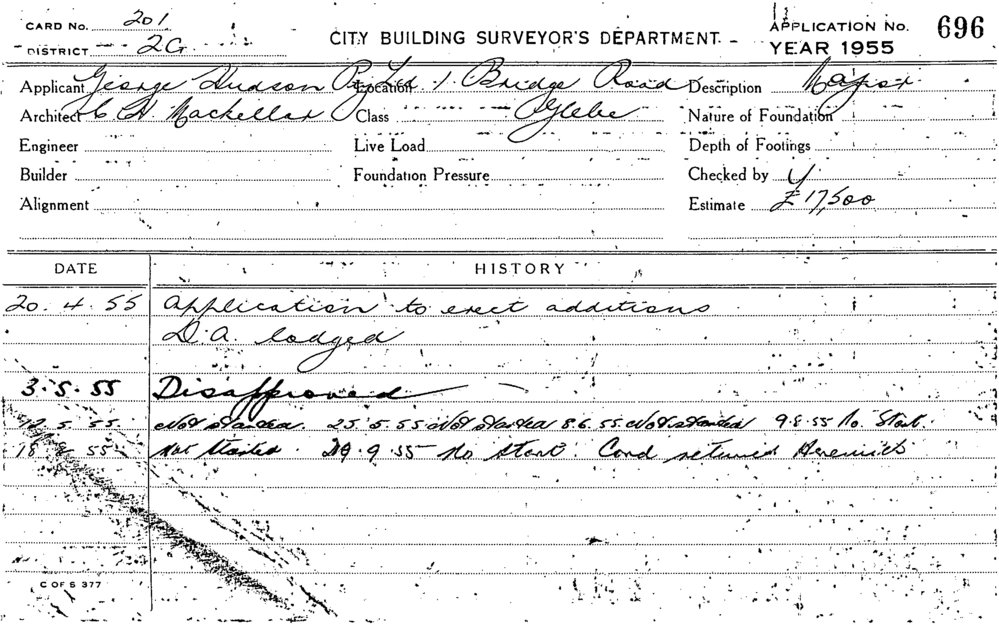 CARD No. 201
DISTRICT 2G
CITY BUILDING SURVEYOR'S DEPARTMENT
APPLICATION No. 696
YEAR 1955
Applicant George Hudson Pty Ltd Location 1 Bridge Road Description Major
Architect C H Mackellar Class Glebe Nature of Foundation
Engineer Live Load Depth of Footings
Builder Foundation Pressure Checked by
Alignment Estimate £17,500
DATE HISTORY
20.4.55 Application to erect additions
D.A. lodged
3.5.55 Disapproved
12.5.55 Not started. 25.5.55 Not started 8.6.55 Not started 9.8.55 No Start.
18 55 Not Started. 29.9.55 No Start. Card returned Herewith
C OF S 377